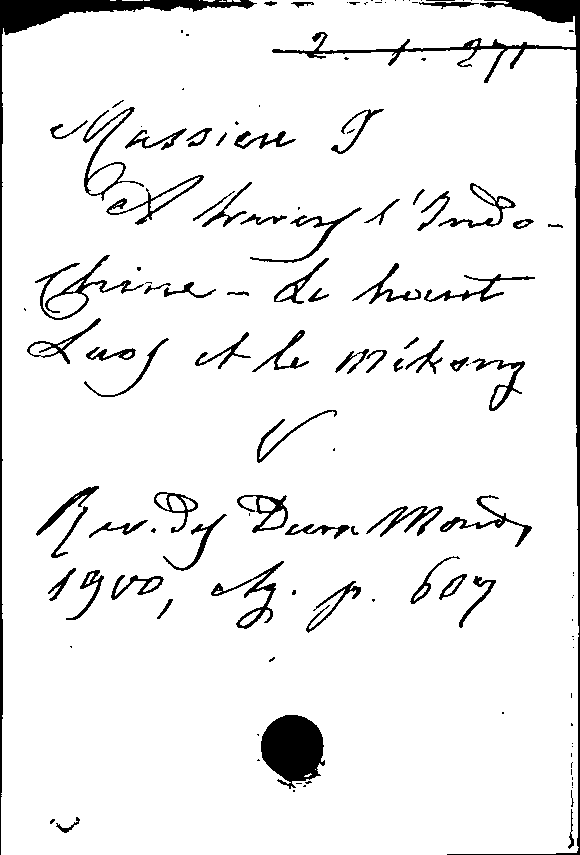 2. 1. 271
Massieu I
A travers l'Indo-
Chine - Le haut
Laos et le Mékong
V.
Rev. des Deux Mond,
1900, Ag. p. 607